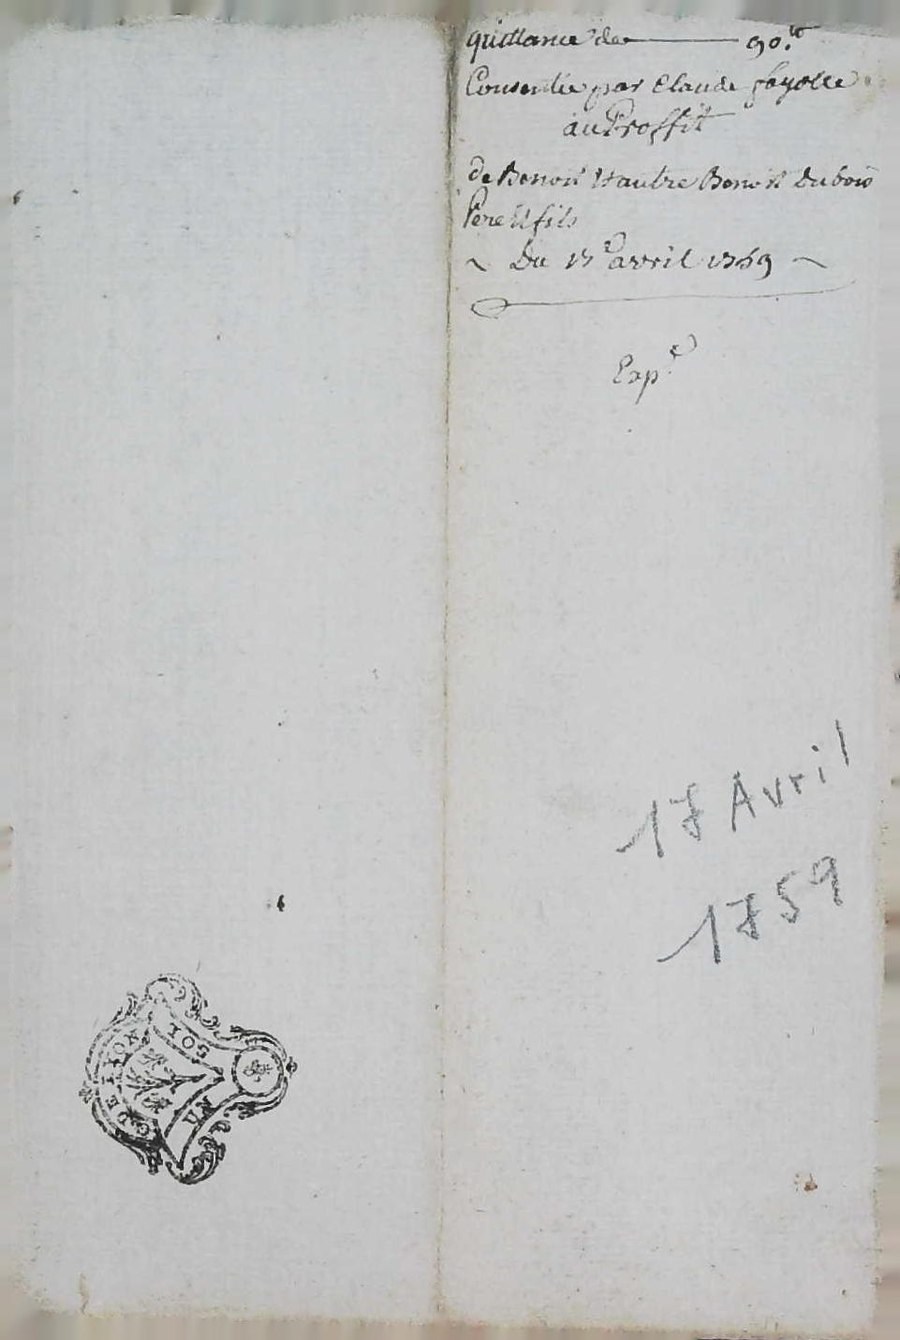 quittance de — 90.lt
Consentie par Claude fayolle
au Proffit
de Benoit & autre Benoit Dubois
Pere & fils
~ Du 17e avril 1759 ~
Expe
17 Avril
1759
G. DE LYON
UN SOL